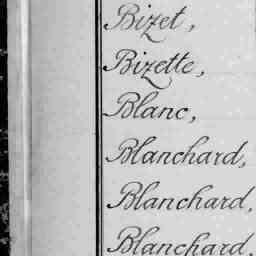 Bizet,
Bizette,
Blanc,
Blanchard,
Blanchard,
Blanchard,